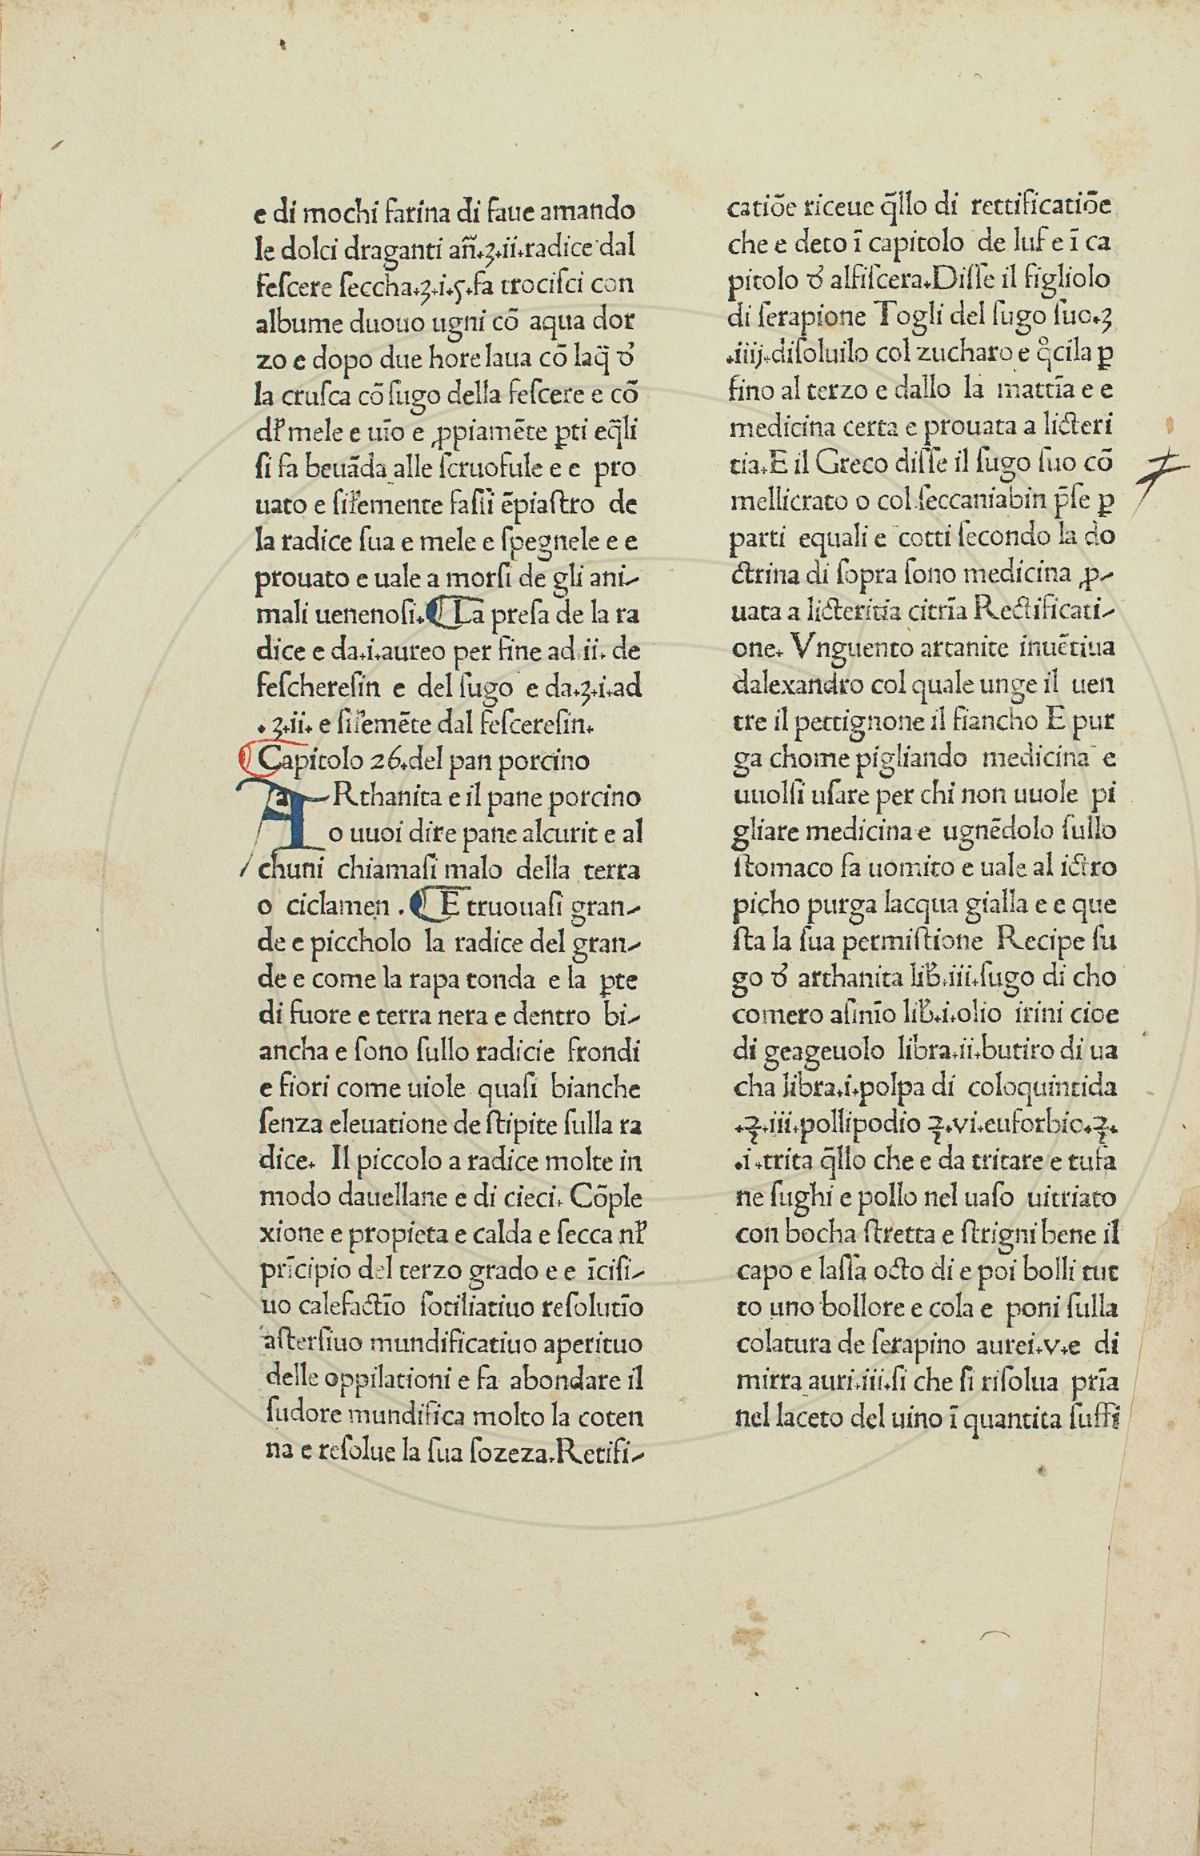 e di mochi farina di faue amando
le dolci draganti an̄.ʒ.ii.radice dal
feſcere ſeccha.ʒ.i.ɕ.fa trociſci con
albume duouo ugni cō aqua dor
zo e dopo due hore laua cō laq̄ đ
la cruſca cō ſugo della feſcere e cō
dr̄ mele e uīo e ꝓpiamēte ꝑti eq̄li
ſi fa beuāda alle ſcruofule e e pro
uato e ſiłemente faſſi ēpiaſtro de
la radice ſua e mele e ſpegnele e e
prouato e uale a morſi de gli ani-
mali uenenoſi. ¶ La preſa de la ra
dice e da.i.aureo per fine ad ii. de
feſchereſin e del ſugo e da.ʒ.i.ad
.ʒ.ii. e ſiłemēte dal feſcereſin.
¶ Capitolo 26.del pan porcino
ARthanita e il pane porcino
o uuoi dire pane alcurit e al
chuni chiamaſi malo della terra
o ciclamen . ¶ E truouaſi gran-
de e piccholo la radice del gran-
de e come la rapa tonda e la ꝑte
di fuore e terra nera e dentro bi-
ancha e ſono ſullo radicie frondi
e fiori come uiole quaſi bianche
ſenza eleuatione de ſtipite ſulla ra
dice. Il piccolo a radice molte in
modo dauellane e di cieci. Cōple
xione e propieta e calda e ſecca nł
prīcipio del terzo grado e e īciſi-
uo calefactīo ſotiliatiuo reſolutīo
aſterſiuo mundificatiuo aperituo
delle oppilationi e fa abondare il
ſudore mundifica molto la coten
na e reſolue la ſua ſozeza.Retifi-
catiōe riceue q̄llo di rettificatiōe
che e deto ī capitolo de luf e ī ca
pitolo đ alfiſcera.Diſſe il figliolo
di ſerapione Togli del ſugo ſuo.ʒ
.iiij.diſoluilo col zucharo e qͦcila ꝑ
fino al terzo e dallo la mattīa e e
medicina certa e prouata a licteri
tia.E il Greco diſſe il ſugo ſuo cō
mellicrato o col ſeccaniabin p̄ſe ꝑ
parti equali e cotti ſecondo la do
ctrina di ſopra ſono medicina ꝓ-
uata a licteritia citrīa Rectificati-
one. Vnguento artanite inuētiua
dalexandro col quale unge il uen
tre il pettignone il fiancho E pur
ga chome pigliando medicina e
uuolſi uſare per chi non uuole pi
gliare medicina e ugnēdolo ſullo
ſtomaco fa uomito e uale al ictro
picho purga lacqua gialla e e que
ſta la ſua permiſtione Recipe ſu
go đ arthanita lib̄.iii.ſugo di cho
comero aſinīo lib̄.i.olio irini cioe
di geageuolo libra.ii.butiro di ua
cha libra.i.polpa di coloquintida
.℥.iii.pollipodio ℥.vi.euforbio.℥.
.i.trita q̄llo che e da tritare e tufa
ne ſughi e pollo nel uaſo uitriato
con bocha ſtretta e ſtrigni bene il
capo e laſſa octo di e poi bolli tut
to uno bollore e cola e poni ſulla
colatura de ſerapino aurei.v.e di
mirra auri.iii.ſi che ſi riſolua prīa
nel laceto del uino ī quantita ſuffi